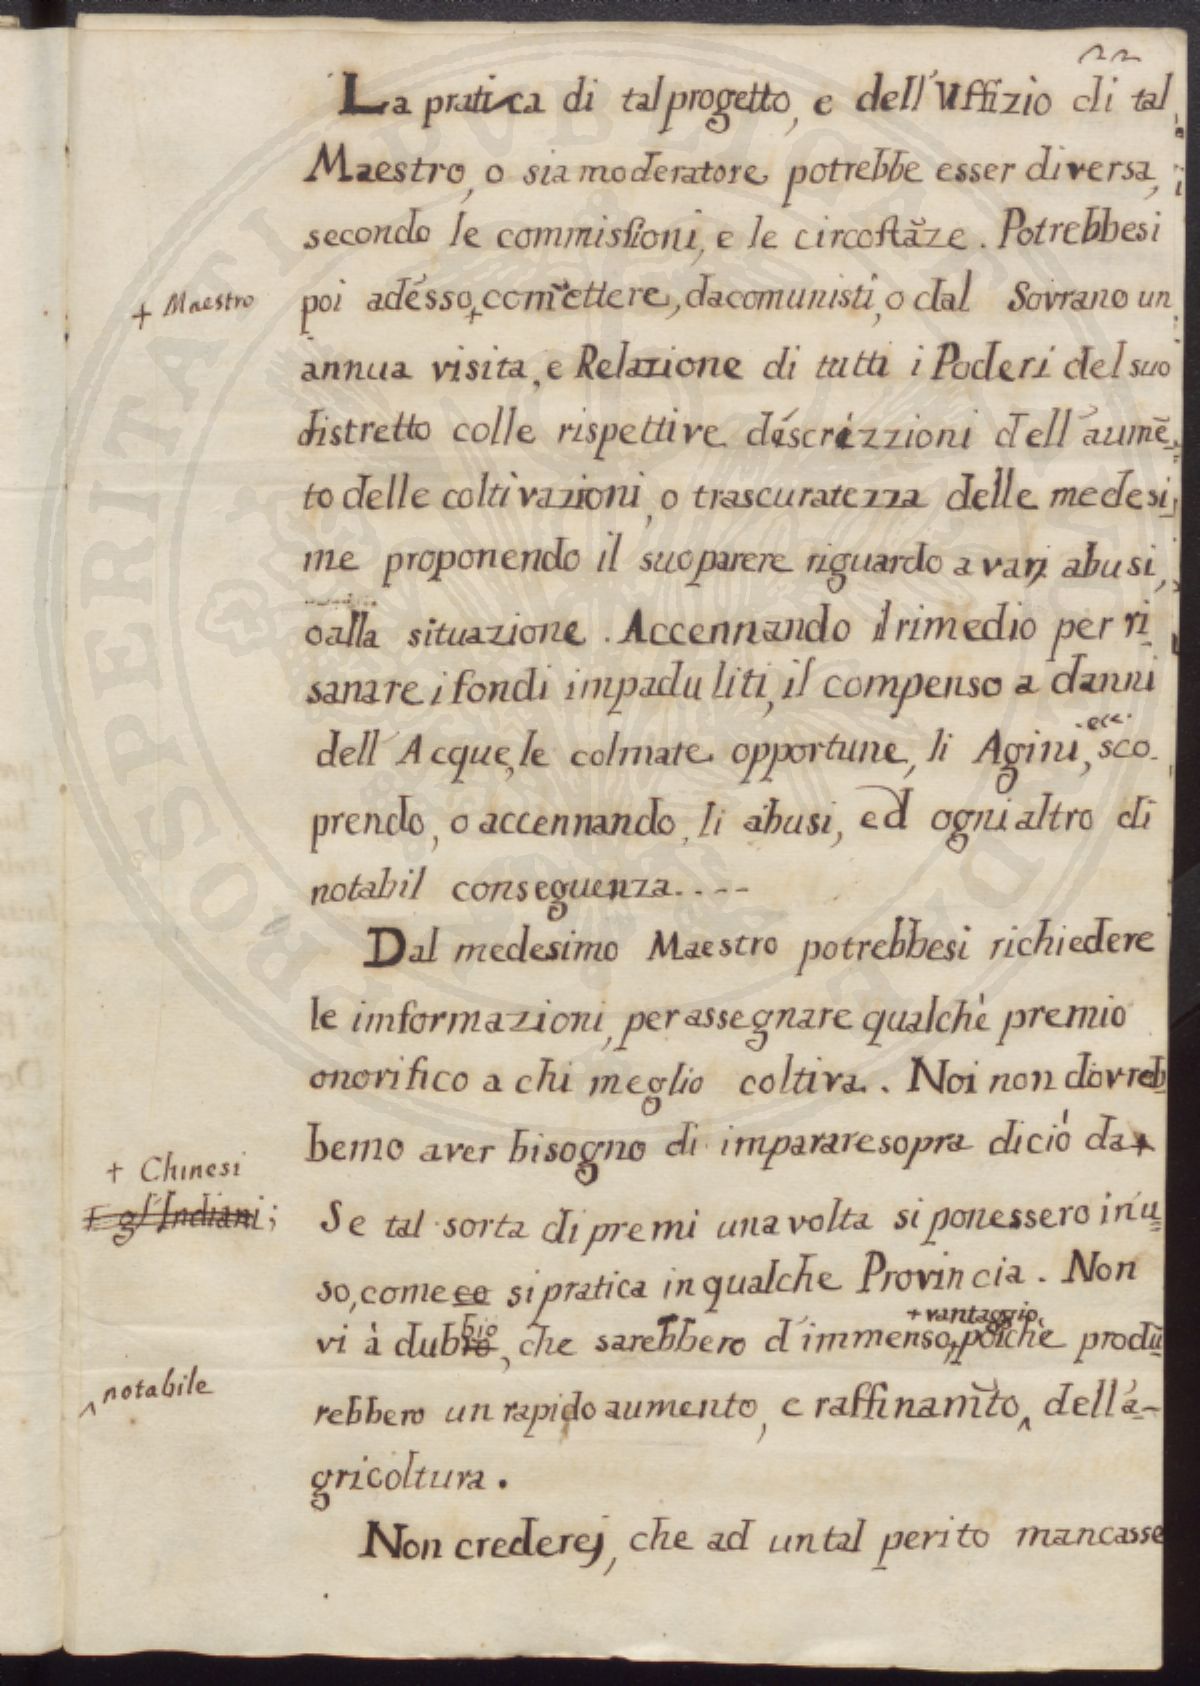 22
La pratica di tal progetto, e dell'Uffizio di tal
Maestro, o sia moderatore potrebbe esser diversa,
secondo le commissioni, e le circostãze. Potrebbesi
+ Maestro
poi adesso + com̃ettere, da comunisti, o dal Sovrano un
annua visita, e Relazione di tutti i Poderi del suo
distretto colle rispettive descrizzioni dell'aumẽ=
to delle coltivazioni, o trascuratezza delle medesi
me proponendo il suo parere riguardo a varj abusi,
o alla situazione. Accennando il rimedio per ri
sanare i fondi impaduliti, il compenso a danni
dell'Acque, le colmate opportune, li Agini, ecc. sco-
prendo, o accennando li abusi, ed ogni altro di
notabil conseguenza....
Dal medesimo Maestro potrebbesi richiedere
le imformazioni, per assegnare qualchè premio
onorifico a chi meglio coltiva. Noi non dovreb
bemo aver bisogno di imparare sopra di ciò da +
+ Chinesi
E gl'Indiani;
Se tal sorta di premi una volta si ponessero in u=
so, come co si pratica in qualche Provincia. Non
vi à dubro bio, che sarebbero d'immenso + + vantaggio, poichè produ=
rebbero un rapido aumento, e raffinam̃to ^ dell'a-
^ notabile
gricoltura.
Non crederej, che ad un tal perito mancasse
PROSPERITATI PUBLICAE AUGENDAE